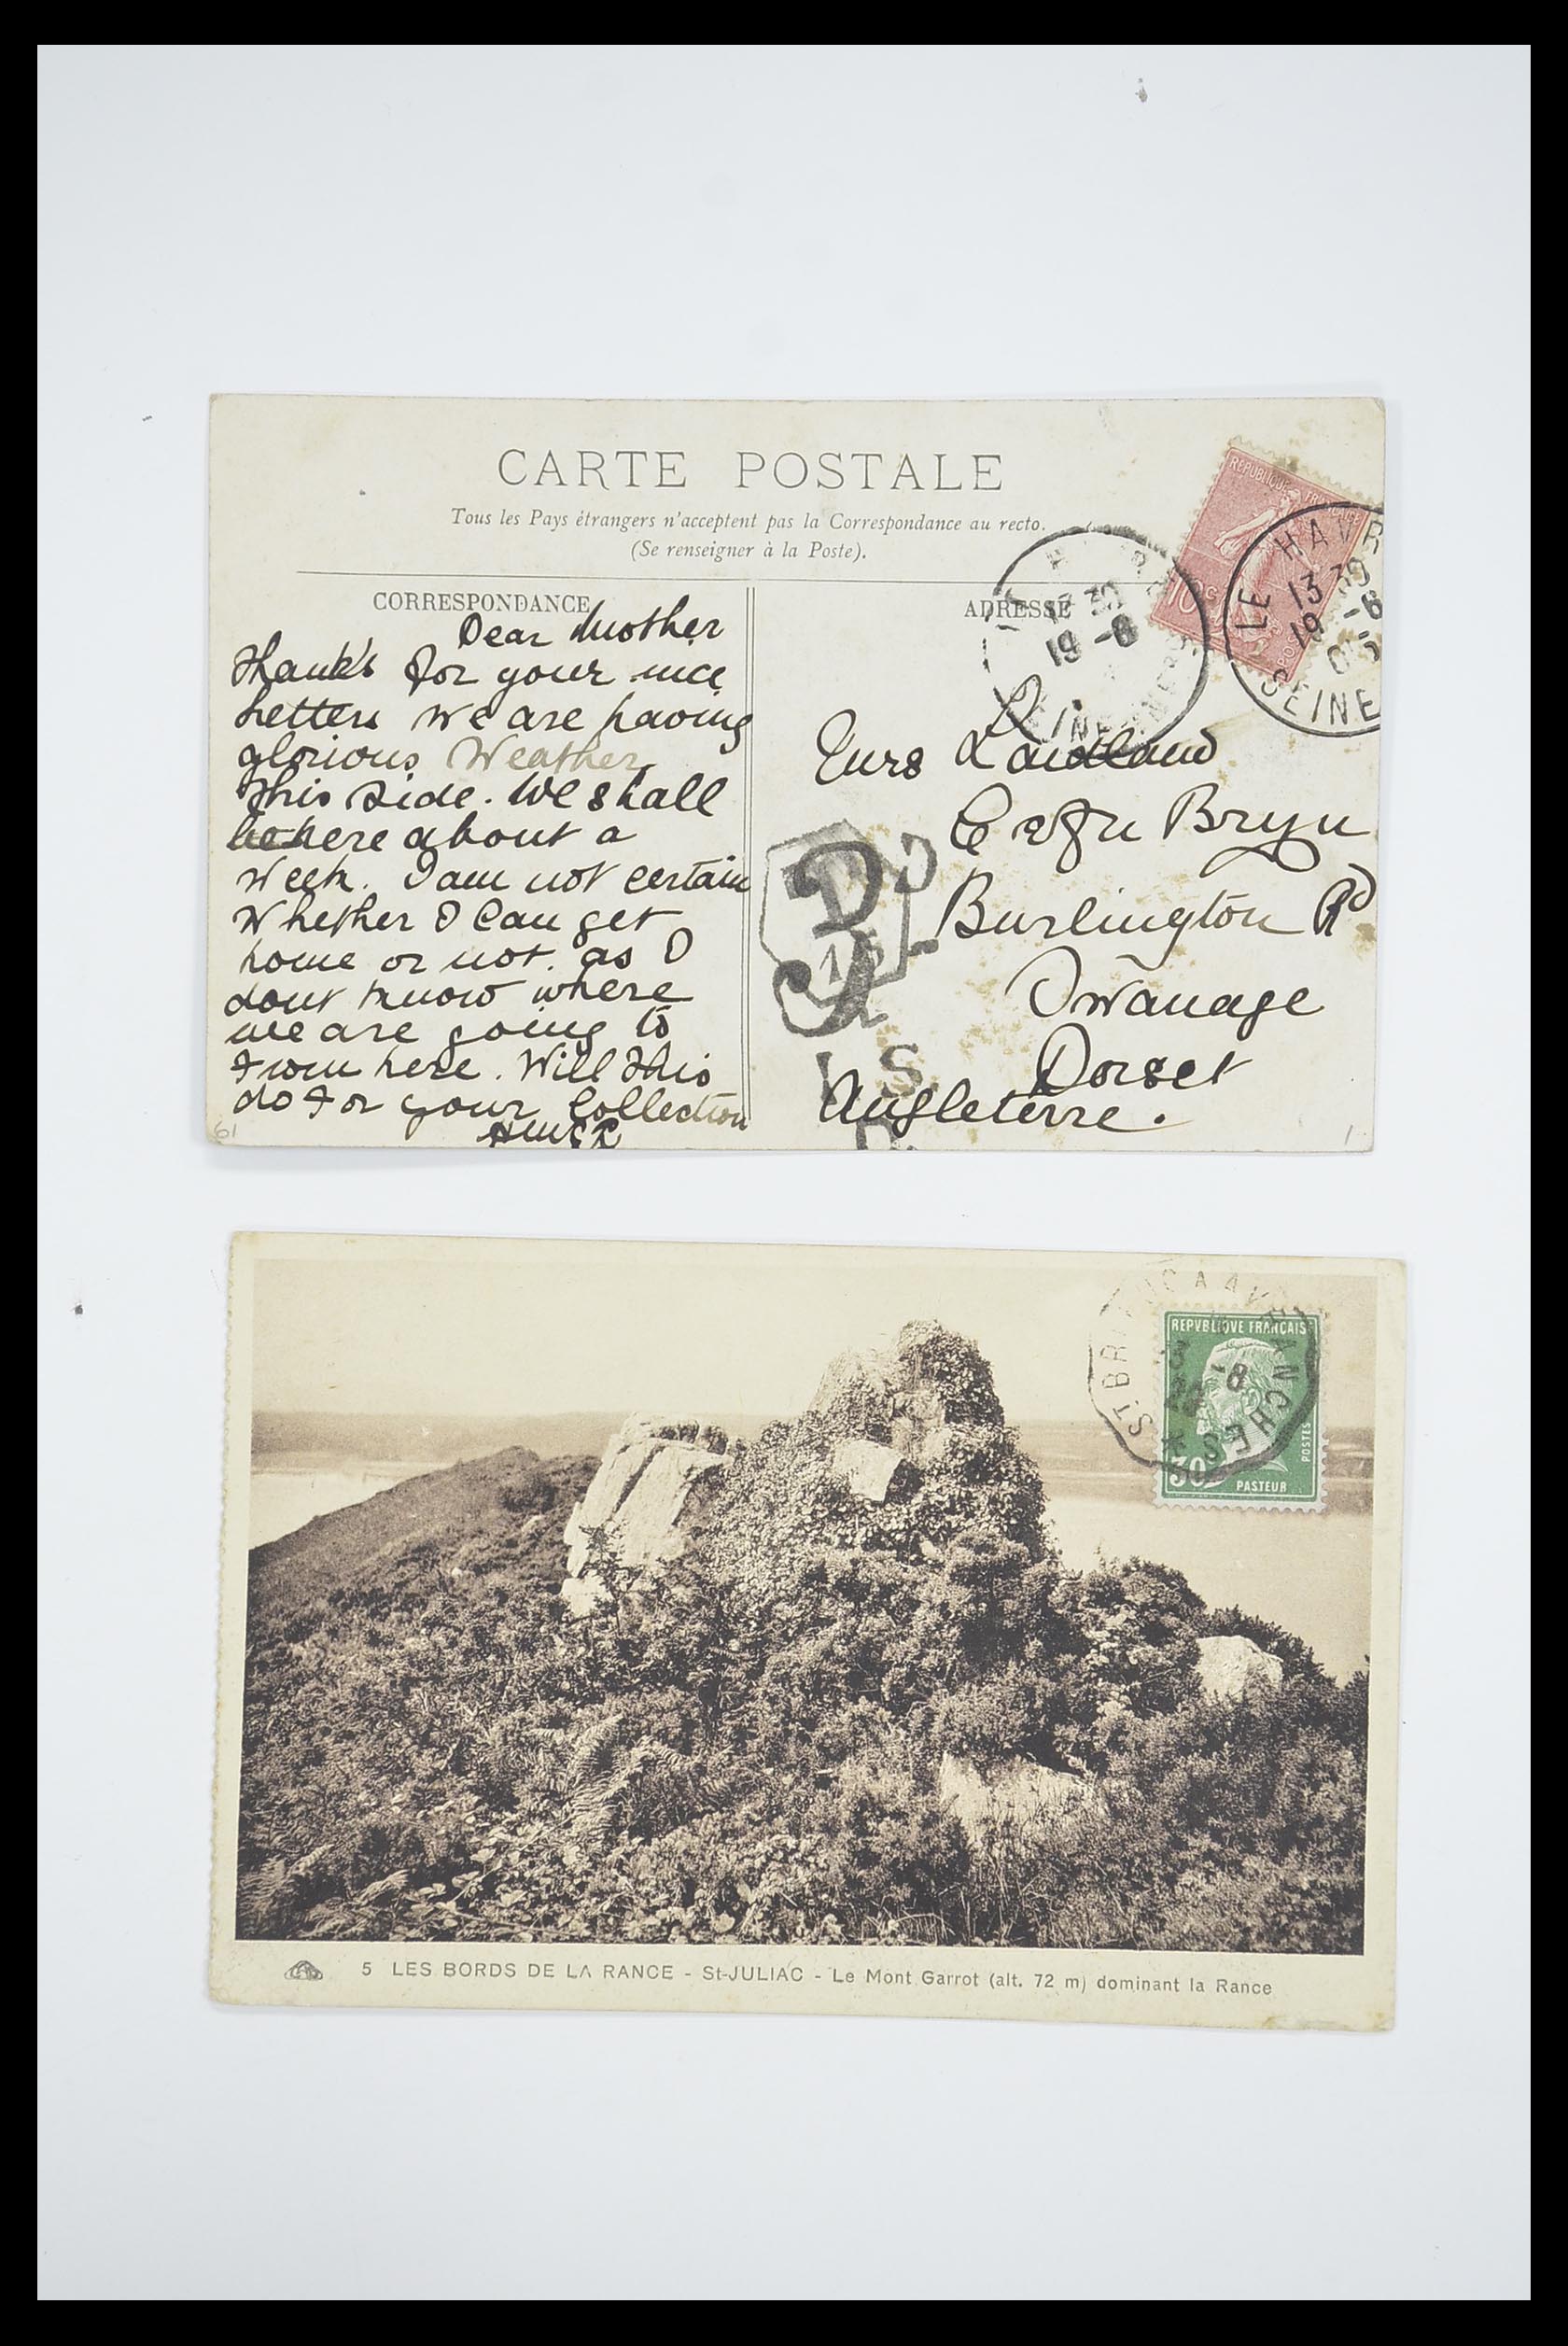 CARTE POSTALE
Tous les Pays étrangers n'acceptent pas la Correspondance au recto.
(Se renseigner à la Poste).
CORRESPONDANCE
Dear Mother
Thank's for your nice
Letters We are having
glorious Weather
This side. We shall
be here about a
Week. I am not certain
Whether I Can get
home or not. as I
dont know where
we are going to
From here. Will This
do For your Collection
ADRESSE
REPUBLIQUE FRANÇAISE
10c
POSTES
LE HAVR
13 30
19 -6
05
SEINE
13 30
19 -6
Laidlaw
Cefn Bryn
Burlington Rd
Swanage
Dorset
Angleterre.
61
1
ST BRIEUC A AVRANCHES
3
-8
REPVBLIQVE FRANÇAISE
30c
POSTES
PASTEUR
5 LES BORDS DE LA RANCE - St-JULIAC - Le Mont Garrot (alt. 72 m) dominant la Rance